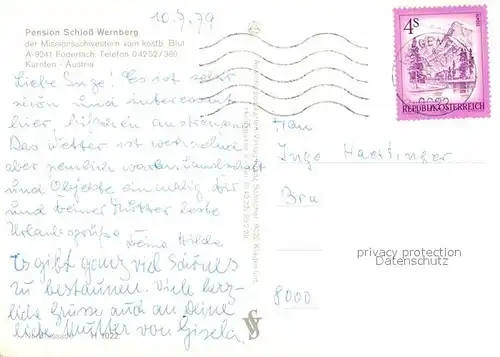 10.7.79
Pension Schloß Wernberg
der Missionsschwestern vom kostb. Blut
A-9241 Föderlach, Telefon 04252/380
Kärnten - Austria
Liebe Inge! Es ist sehr
schön und interessant
hier, bißchen anstrengend.
Das Wetter ist wechselnd
aber ziemlich warm. Landschaft
und Objekte einmalig. Dir
und Deiner Mutter liebe
Urlaubsgrüße Deine Hilde
Es gibt ganz viel Schönes
zu bestaunen. Viele herz-
liche Grüsse auch an Deine
liebe Mutter von Gisela.
H 1022
4 S
REPUBLIK ÖSTERREICH
Inge
8000
privacy protection
Datenschutz